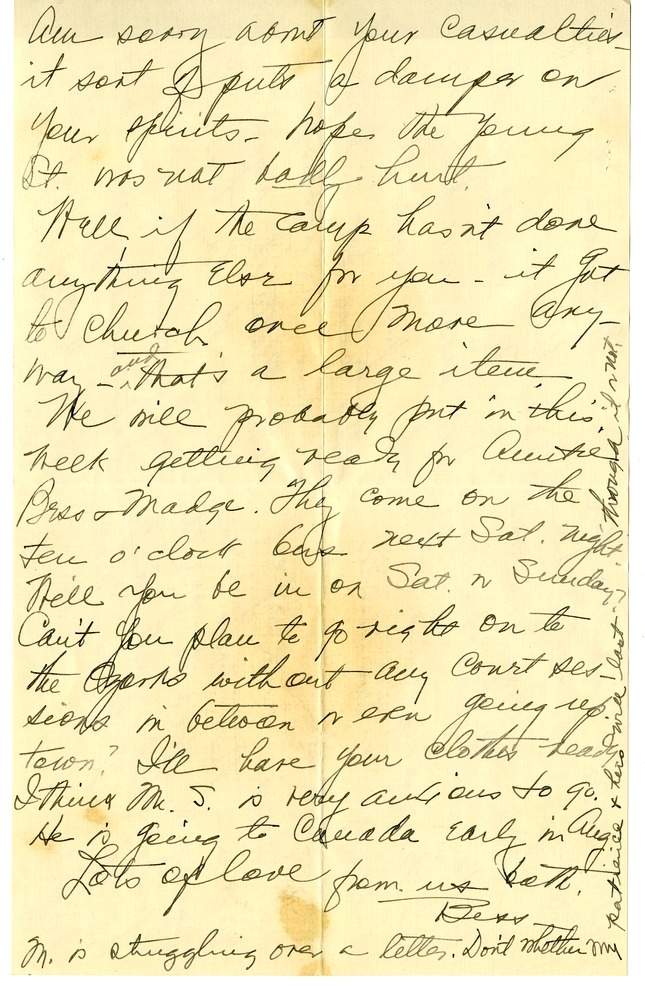 Am sorry about your casualties -
it sort of puts a damper on
your spirits - hope the young
Lt. was not badly hurt.
Well if the camp hasn't done
anything else for you - it got
to church once more any-
way - and that's a large item.
We will probably put in this
week getting ready for Auntie
Bess & Madge. They come on the
ten o'clock bus next Sat. night.
Will you be in on Sat. or Sunday?
Can't you plan to go right on to
the Ozarks without any court ses-
sions in between or even going up
town? I'll have your clothes ready.
I think M. S. is very anxious to go.
He is going to Canada early in Aug.
Lots of love from us both.
Bess
M. is struggling over a letter. Don't whether my
patience & hers will last through it or not.